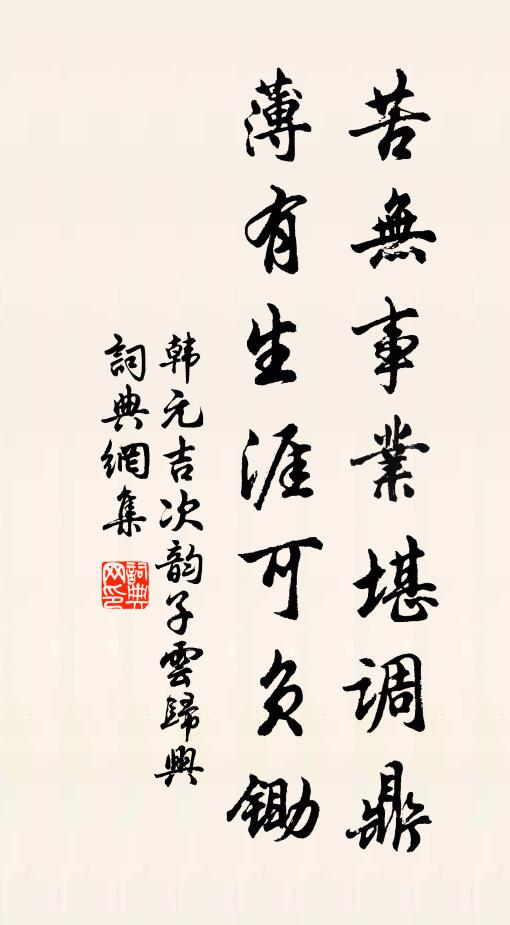 苦無事業堪調鼎
薄有生涯可負鋤
韩元吉次韵子雲歸興
詞典網集
詞典网印